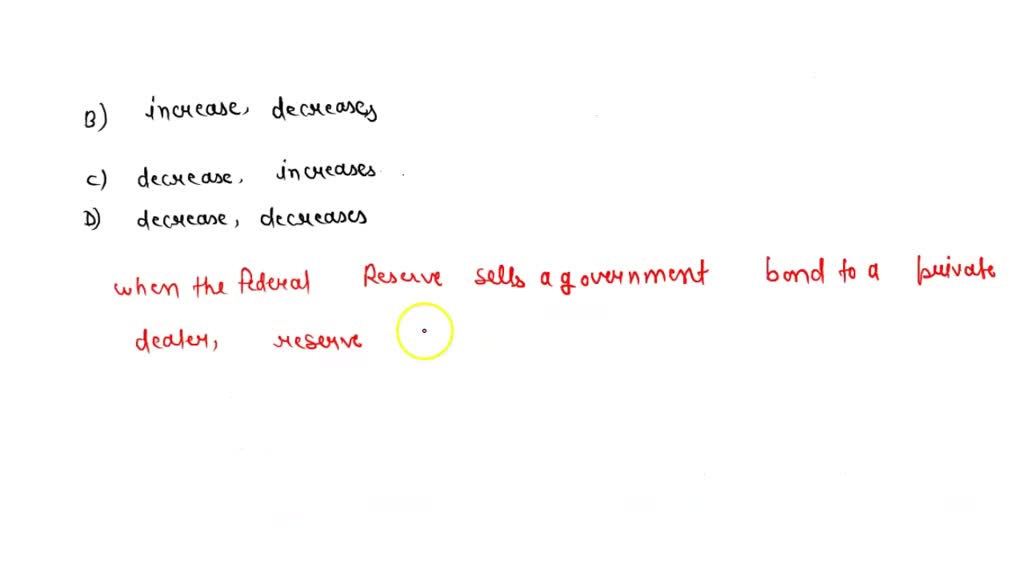 B) increase, decreases
C) decrease, increases
D) decrease, decreases
when the federal Reserve sells a government bond to a private
dealer, reserve